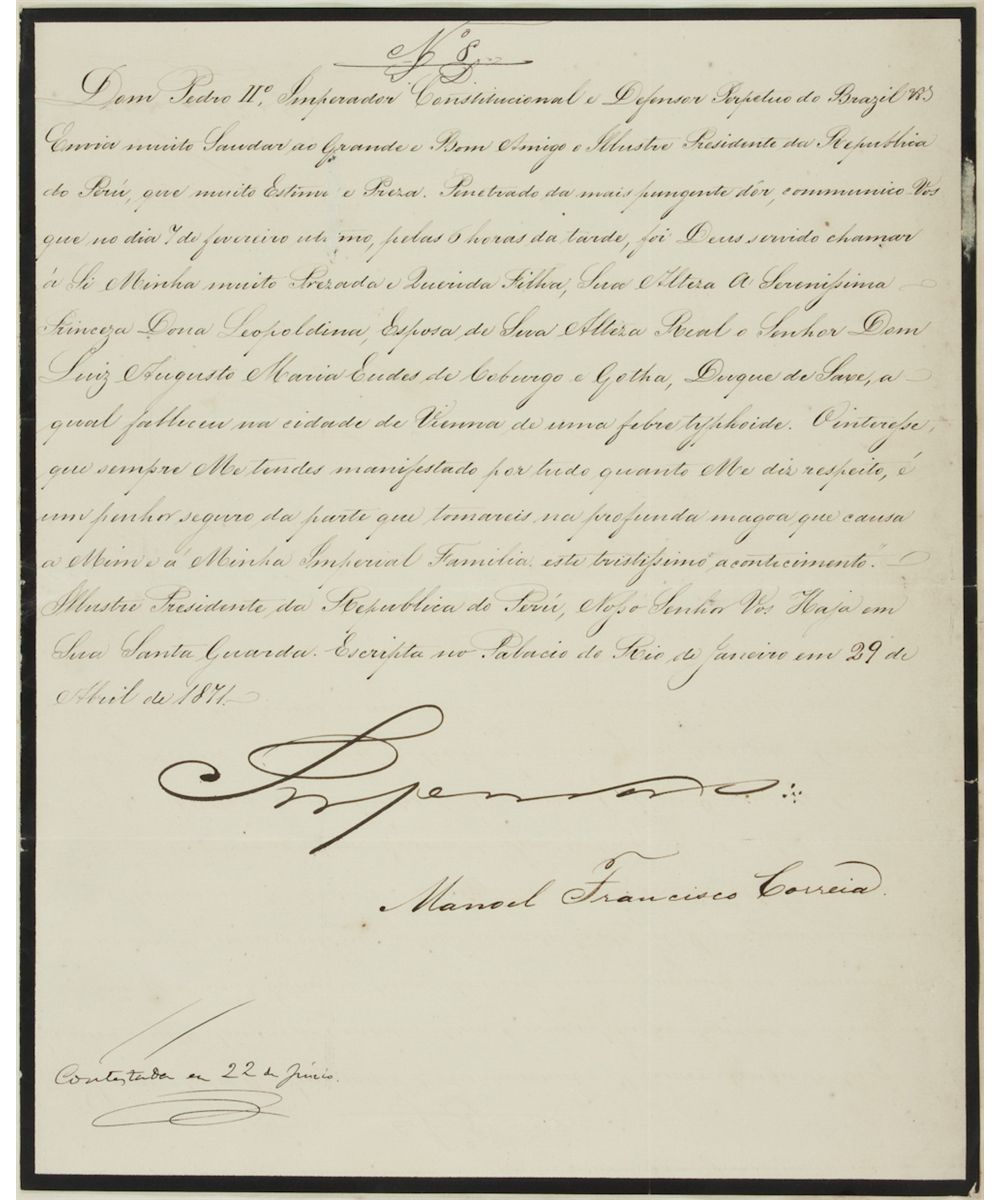 Nº 8
Dom Pedro IIº, Imperador Constitucional e Defensor Perpetuo do Brazil &
Envia muito Saudar ao Grande e Bom Amigo o Illustre Presidente da Republica
do Perú, que muito Estima e Preza. Penetrado da mais pungente dôr, communico-Vos
que no dia 7 de fevereiro ultimo, pelas 6 horas da tarde, foi Deus servido chamar
á Si Minha muito Prezada e Querida Filha, Sua Alteza A Serenissima
Princeza Dona Leopoldina, Esposa de Sua Alteza Real o Senhor Dom
Luiz Augusto Maria Eudes de Coburgo e Gotha, Duque de Saxe, a
qual falleceu na cidade de Vienna de uma febre typhoide. O interesse,
que sempre Me tendes manifestado por tudo quanto Me diz respeito, é
um penhor seguro da parte que tomareis na profunda magoa que causa
a Mim e á Minha Imperial Familia este tristissimo acontecimento.
Illustre Presidente da Republica do Perú, Nosso Senhor Vos Haja em
Sua Santa Guarda. Escripta no Palacio do Rio de Janeiro em 29 de
Abril de 1871.
Imperador
Manoel Francisco Correia.
Contestada en 22 de Junio.